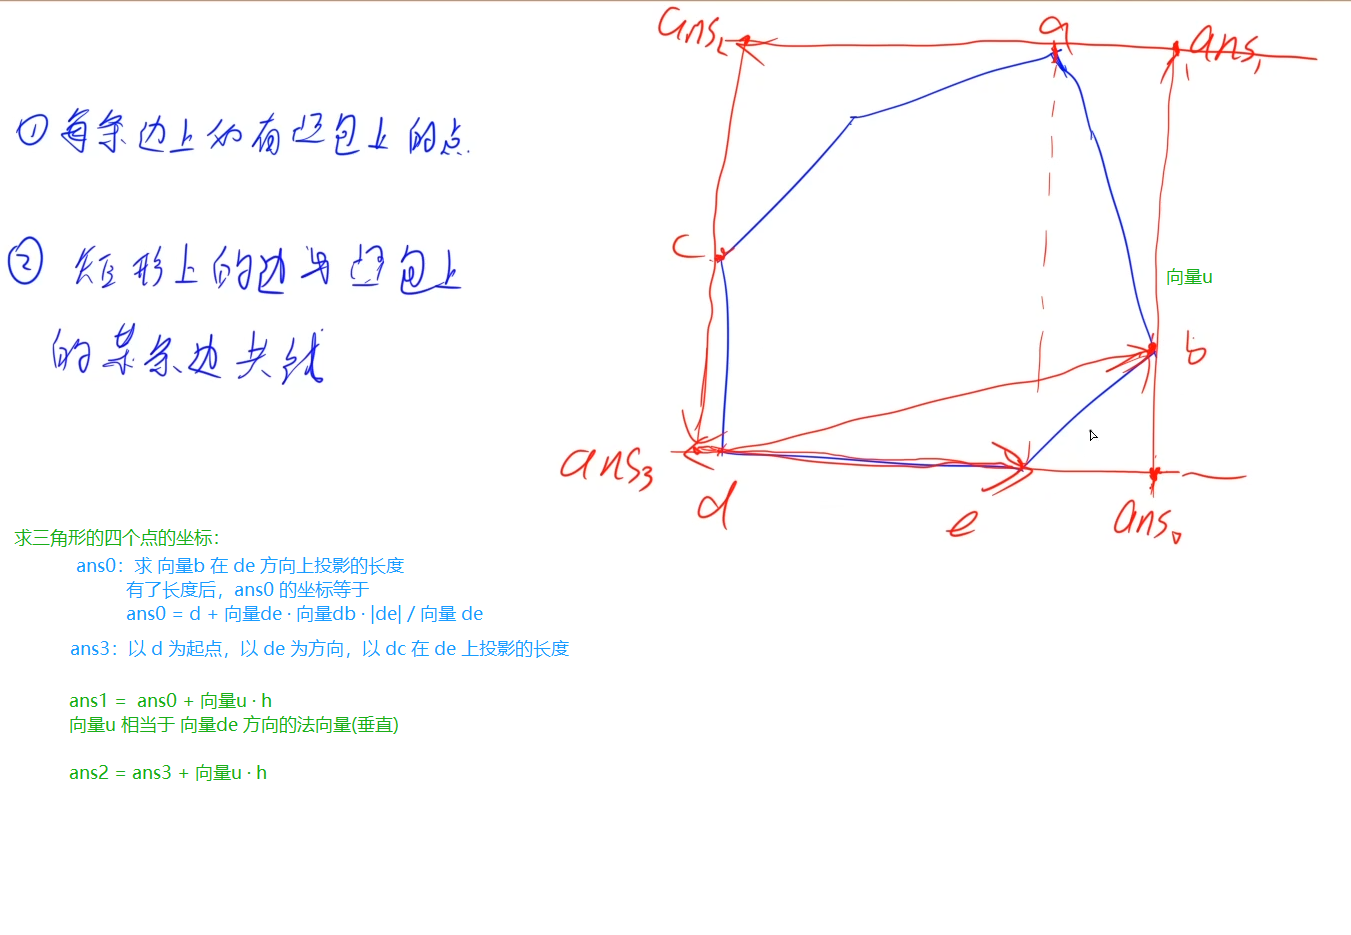 ①每条边上都有凸包上的点.
② 矩形上的边与凸包上
的某条边共线
ans₂
a
ans₁
c
向量u
b
ans₃
d
e
ans₀
求三角形的四个点的坐标：
ans0：求 向量b 在 de 方向上投影的长度
有了长度后，ans0 的坐标等于
ans0 = d + 向量de · 向量db · |de| / 向量 de
ans3：以 d 为起点，以 de 为方向，以 dc 在 de 上投影的长度
ans1 =  ans0 + 向量u · h
向量u 相当于 向量de 方向的法向量(垂直)
ans2 = ans3 + 向量u · h